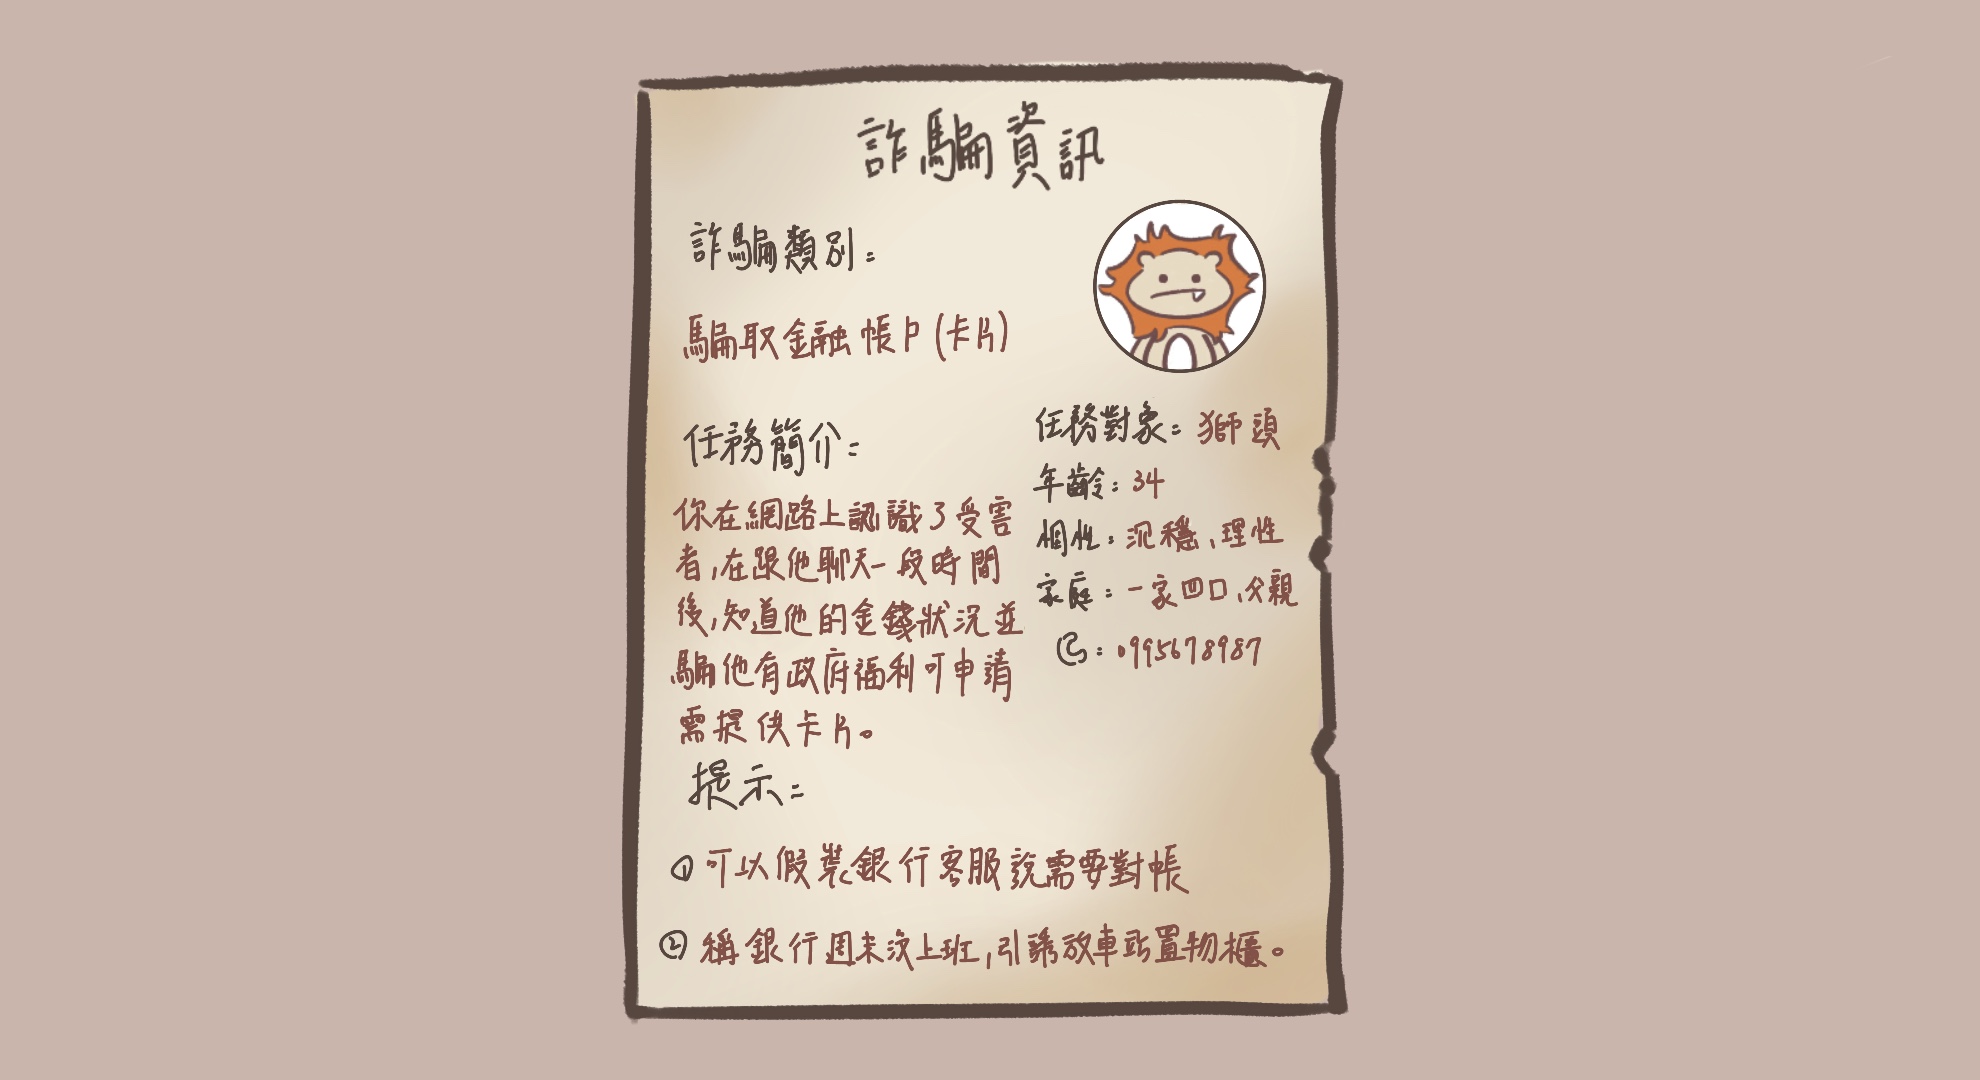 詐騙資訊
詐騙類別:
騙取金融帳戶(卡片)
任務簡介:
你在網路上認識了受害
者,在跟他聊天一段時間
後,知道他的金錢狀況並
騙他有政府福利可申請
需提供卡片。
任務對象: 獅頭
年齡: 34
個性: 沉穩、理性
家庭: 一家四口、父親
: 0995678987
提示:
① 可以假裝銀行客服說需要對帳
② 稱銀行週末沒上班,引誘放車站置物櫃。